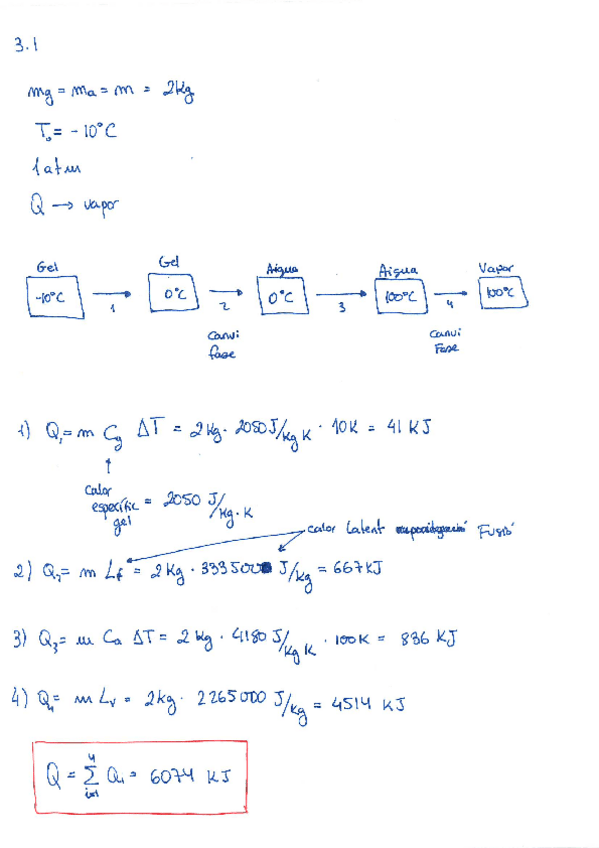 3.1
mg = ma = m = 2kg
T₀ = -10°C
1 atm
Q → vapor
Gel Gel Aigua Aigua Vapor
-10°C → 0°C → 0°C → 100°C → 100°C
1 2 3 4
Canvi fase Canvi Fase
1) Q₁ = m Cg ΔT = 2kg · 2050 J/kg K · 10K = 41 KJ
↑
calor específic gel = 2050 J/kg·K
calor Latent Fusió
2) Q₂ = m Lf = 2kg · 333500 J/kg = 667 KJ
3) Q₃ = m Ca ΔT = 2kg · 4180 J/kg K · 100K = 836 KJ
4) Q₄ = m Lv = 2kg · 2265000 J/kg = 4514 KJ
Q = 4 Σ i=1 Qi = 6074 KJ